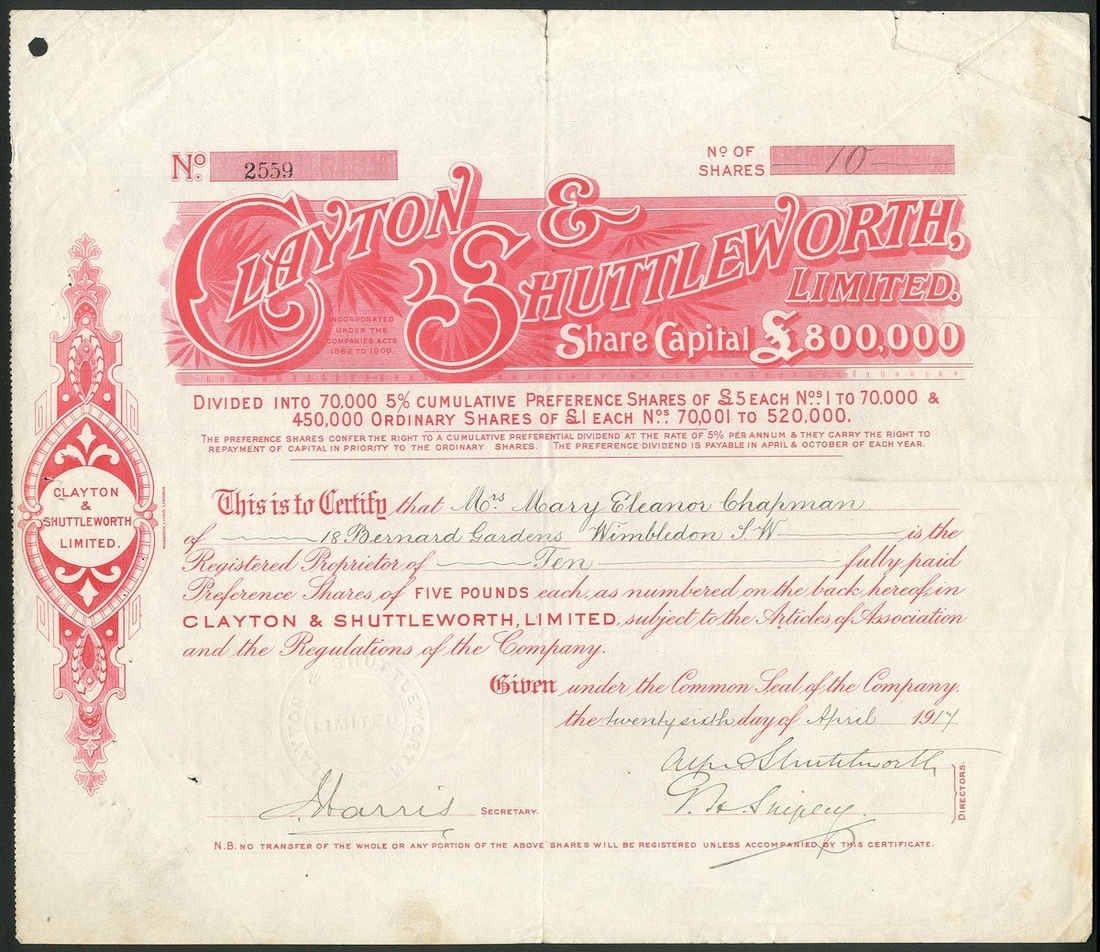 Nº. 2559
Nº OF SHARES 10
CLAYTON & SHUTTLEWORTH, LIMITED.
INCORPORATED
UNDER THE
COMPANIES ACTS
1862 TO 1900.
Share Capital £800,000
DIVIDED INTO 70,000 5% CUMULATIVE PREFERENCE SHARES OF £5 EACH Nos. 1 TO 70.000 &
450,000 ORDINARY SHARES OF £1 EACH Nos. 70,001 TO 520.000.
THE PREFERENCE SHARES CONFER THE RIGHT TO A CUMULATIVE PREFERENTIAL DIVIDEND AT THE RATE OF 5% PER ANNUM & THEY CARRY THE RIGHT TO
REPAYMENT OF CAPITAL IN PRIORITY TO THE ORDINARY SHARES. THE PREFERENCE DIVIDEND IS PAYABLE IN APRIL & OCTOBER OF EACH YEAR.
CLAYTON
&
SHUTTLEWORTH
LIMITED.
This is to Certify that Mrs Mary Eleanor Chapman
of 18 Bernard Gardens Wimbledon S.W is the
Registered Proprietor of Ten fully paid
Preference Shares of FIVE POUNDS each, as numbered on the back hereof, in
CLAYTON & SHUTTLEWORTH, LIMITED, subject to the Articles of Association
and the Regulations of the Company.
Given under the Common Seal of the Company.
the twenty sixth day of April 1917.
CLAYTON & SHUTTLEWORTH
LIMITED
Alfred Shuttleworth
DIRECTORS.
Harris SECRETARY.
N.B. NO TRANSFER OF THE WHOLE OR ANY PORTION OF THE ABOVE SHARES WILL BE REGISTERED UNLESS ACCOMPANIED BY THIS CERTIFICATE.